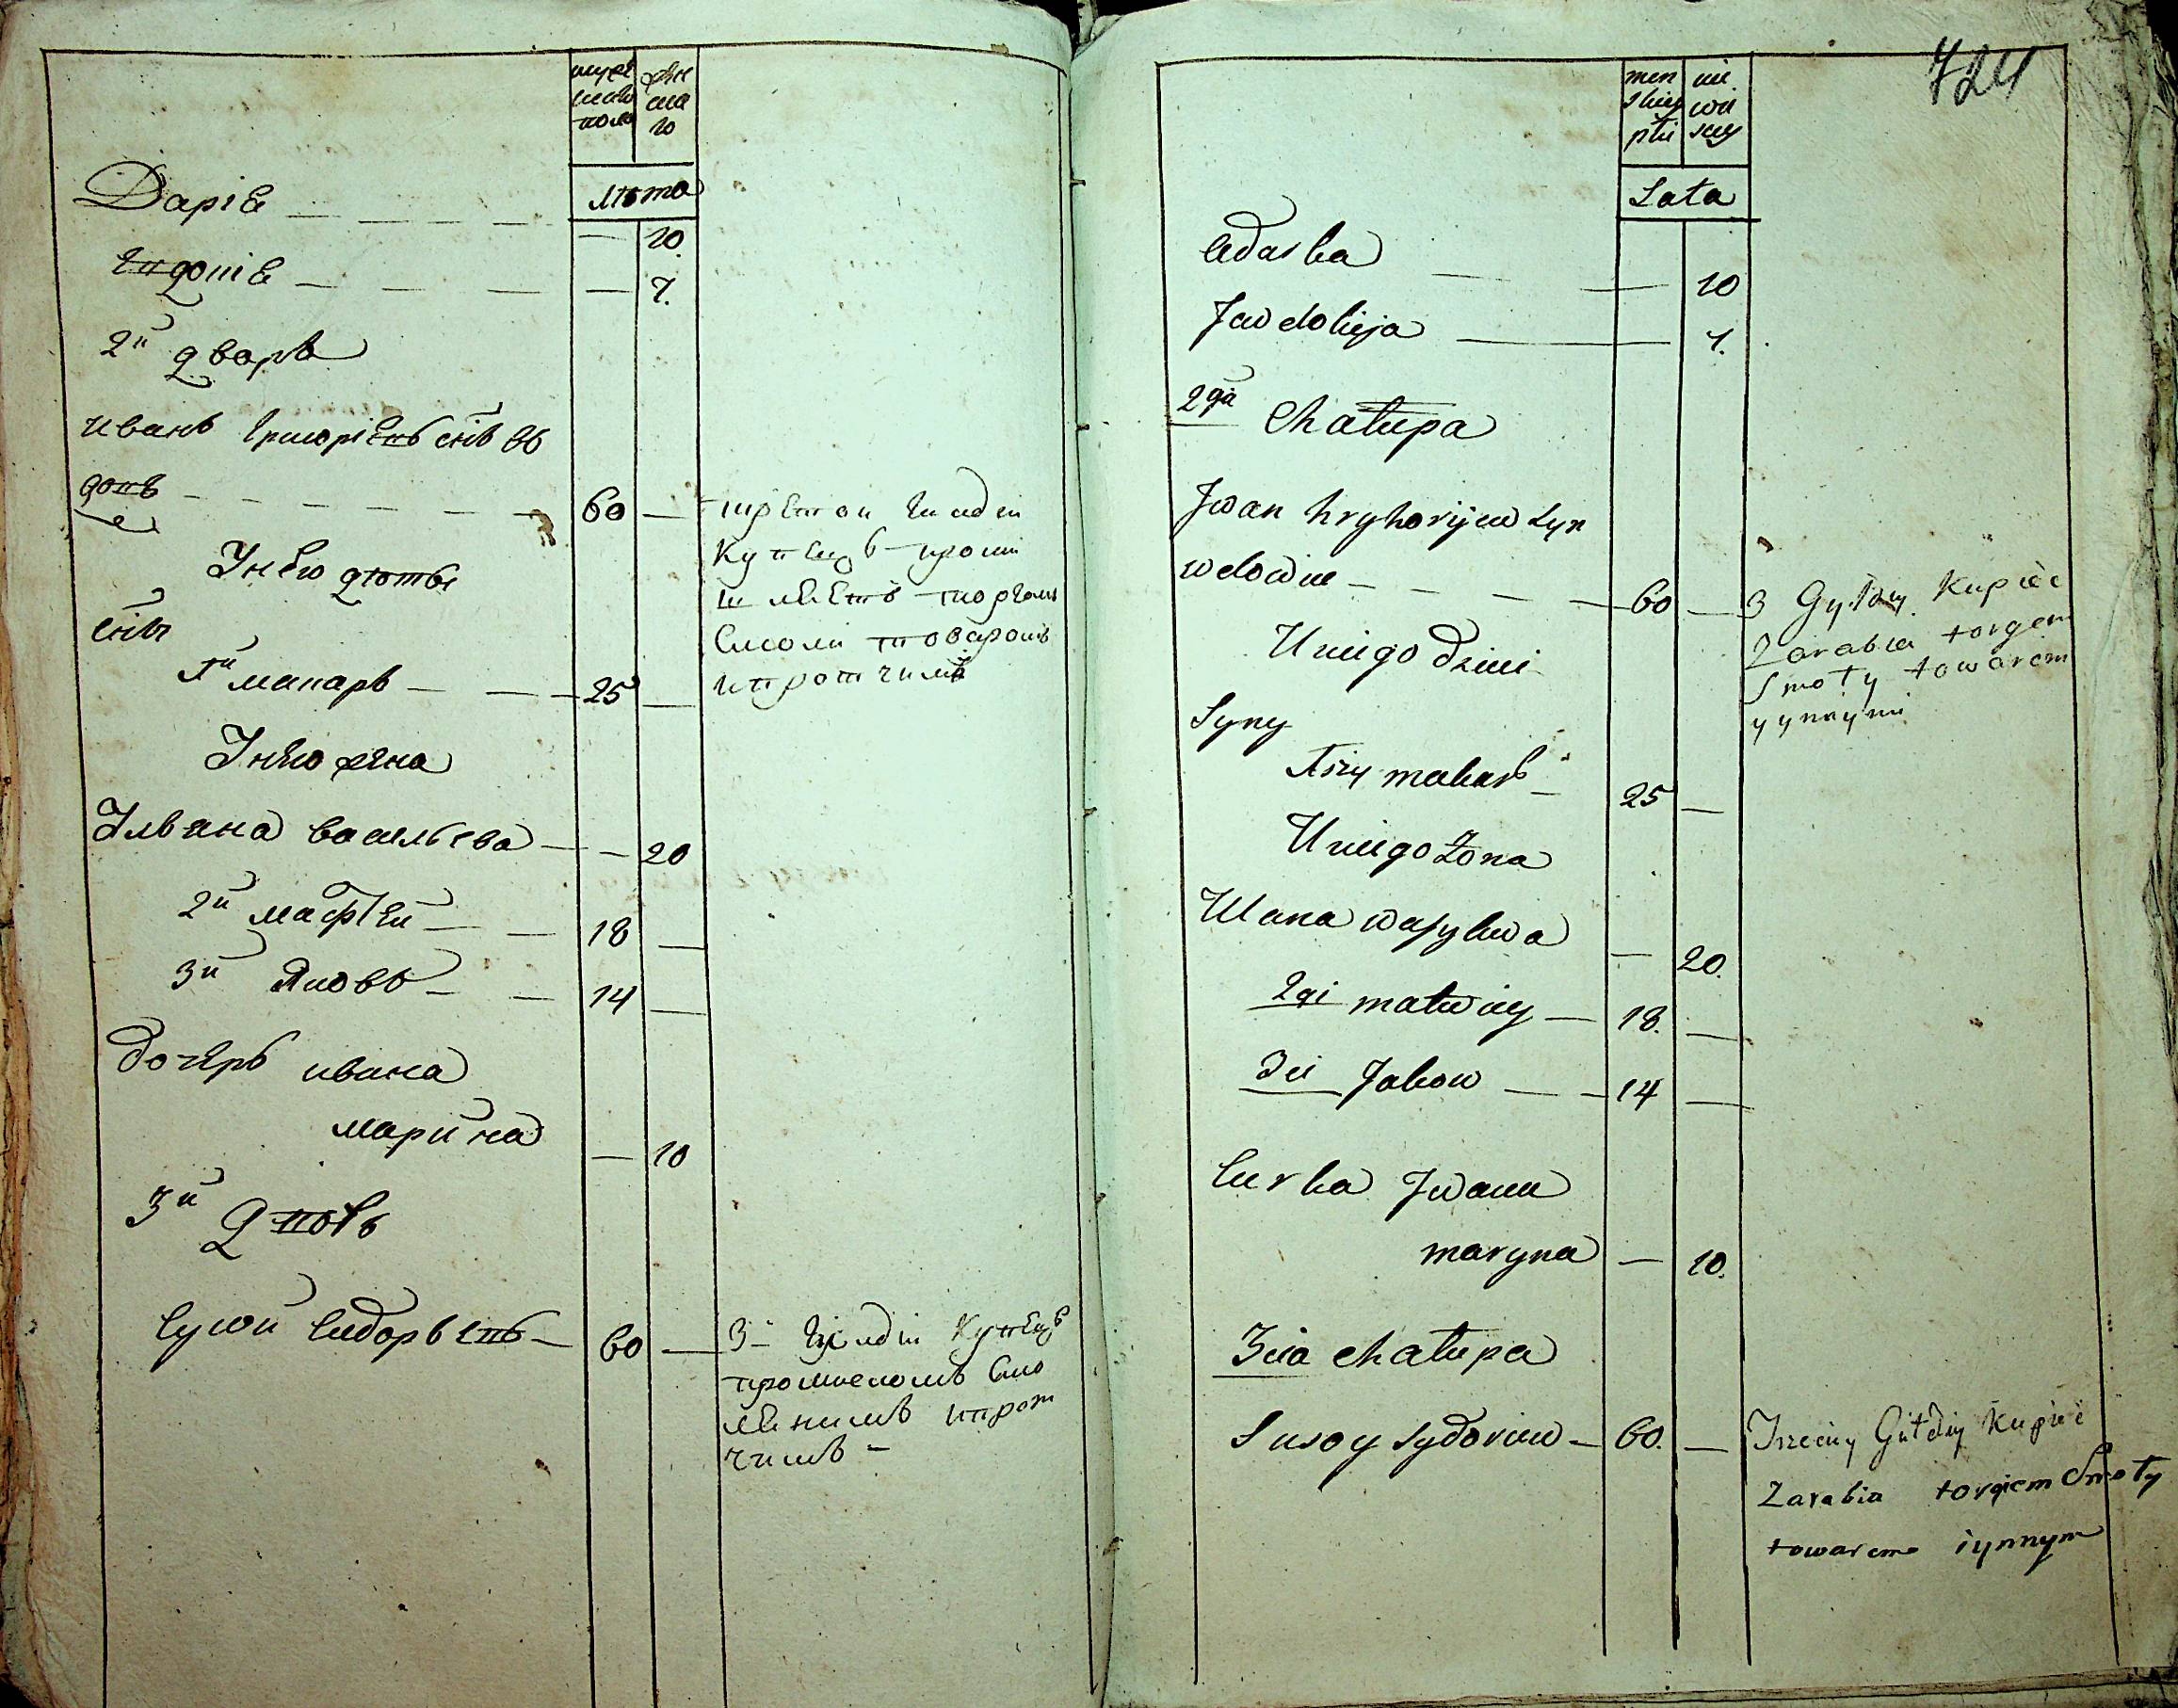 муже
ска
пола
жен
ска
го
лѣта
Даріа — — — — — 10.
— — — — — 7.
2й дворъ
иванъ григоріевъ снъ въ
довъ — — — — — 60 —
третои гилдіи
купецъ проми
торгомъ
смоли товаромъ
ипротчимъ
Унего дѣти
снъ
1й макаръ — — — 25 —
Унего жена
Ульяна васильева — — 20
2й матфей — — 18 —
3й Яковъ — — 14 —
дочеръ ивана
марина — 10
3й дворъ
Сусой сидоровъ снъ — 60 —
3й гилдіи купецъ
промисломъ смо
ипрот
чимъ —
724
men
skiey
płci
nie
wia
sciey
Lata
Odarka — — 10
Jewdokija — 7.
2ga Chałupa
Jwan hryhoryiew Syn
wdowiec — — — — 60 —
3 Gyłdy Kupiec
Zarabia torgem
Smoły towarem
y ynnymi
U niego dzieci
Syny
1szy makar — 25 —
U niego Żona
Ulana wasylewa — 20.
2gi matwiey — 18. —
3ci Jakow — — 14 —
Curka Jwana
maryna — 10.
3cia chałupa
Susoy Sydoriew — 60. —
Trzeciey Giłdiy Kupiec
Zarabia torgiem Smoły
towarem iynnym